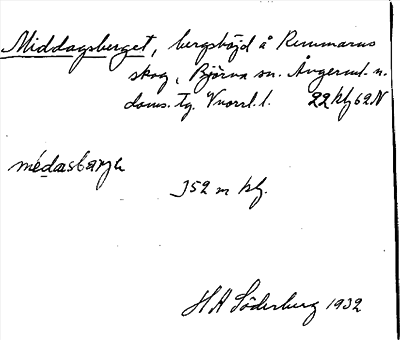 Middagsberget, bergshöjd å Remmarns
skog, Björna sn. Ångerml. n.
doms. tg. Vnorrl. l. 22 Kbf 62 N
médasbarje
352 m kbf.
HA Söderberg 1932